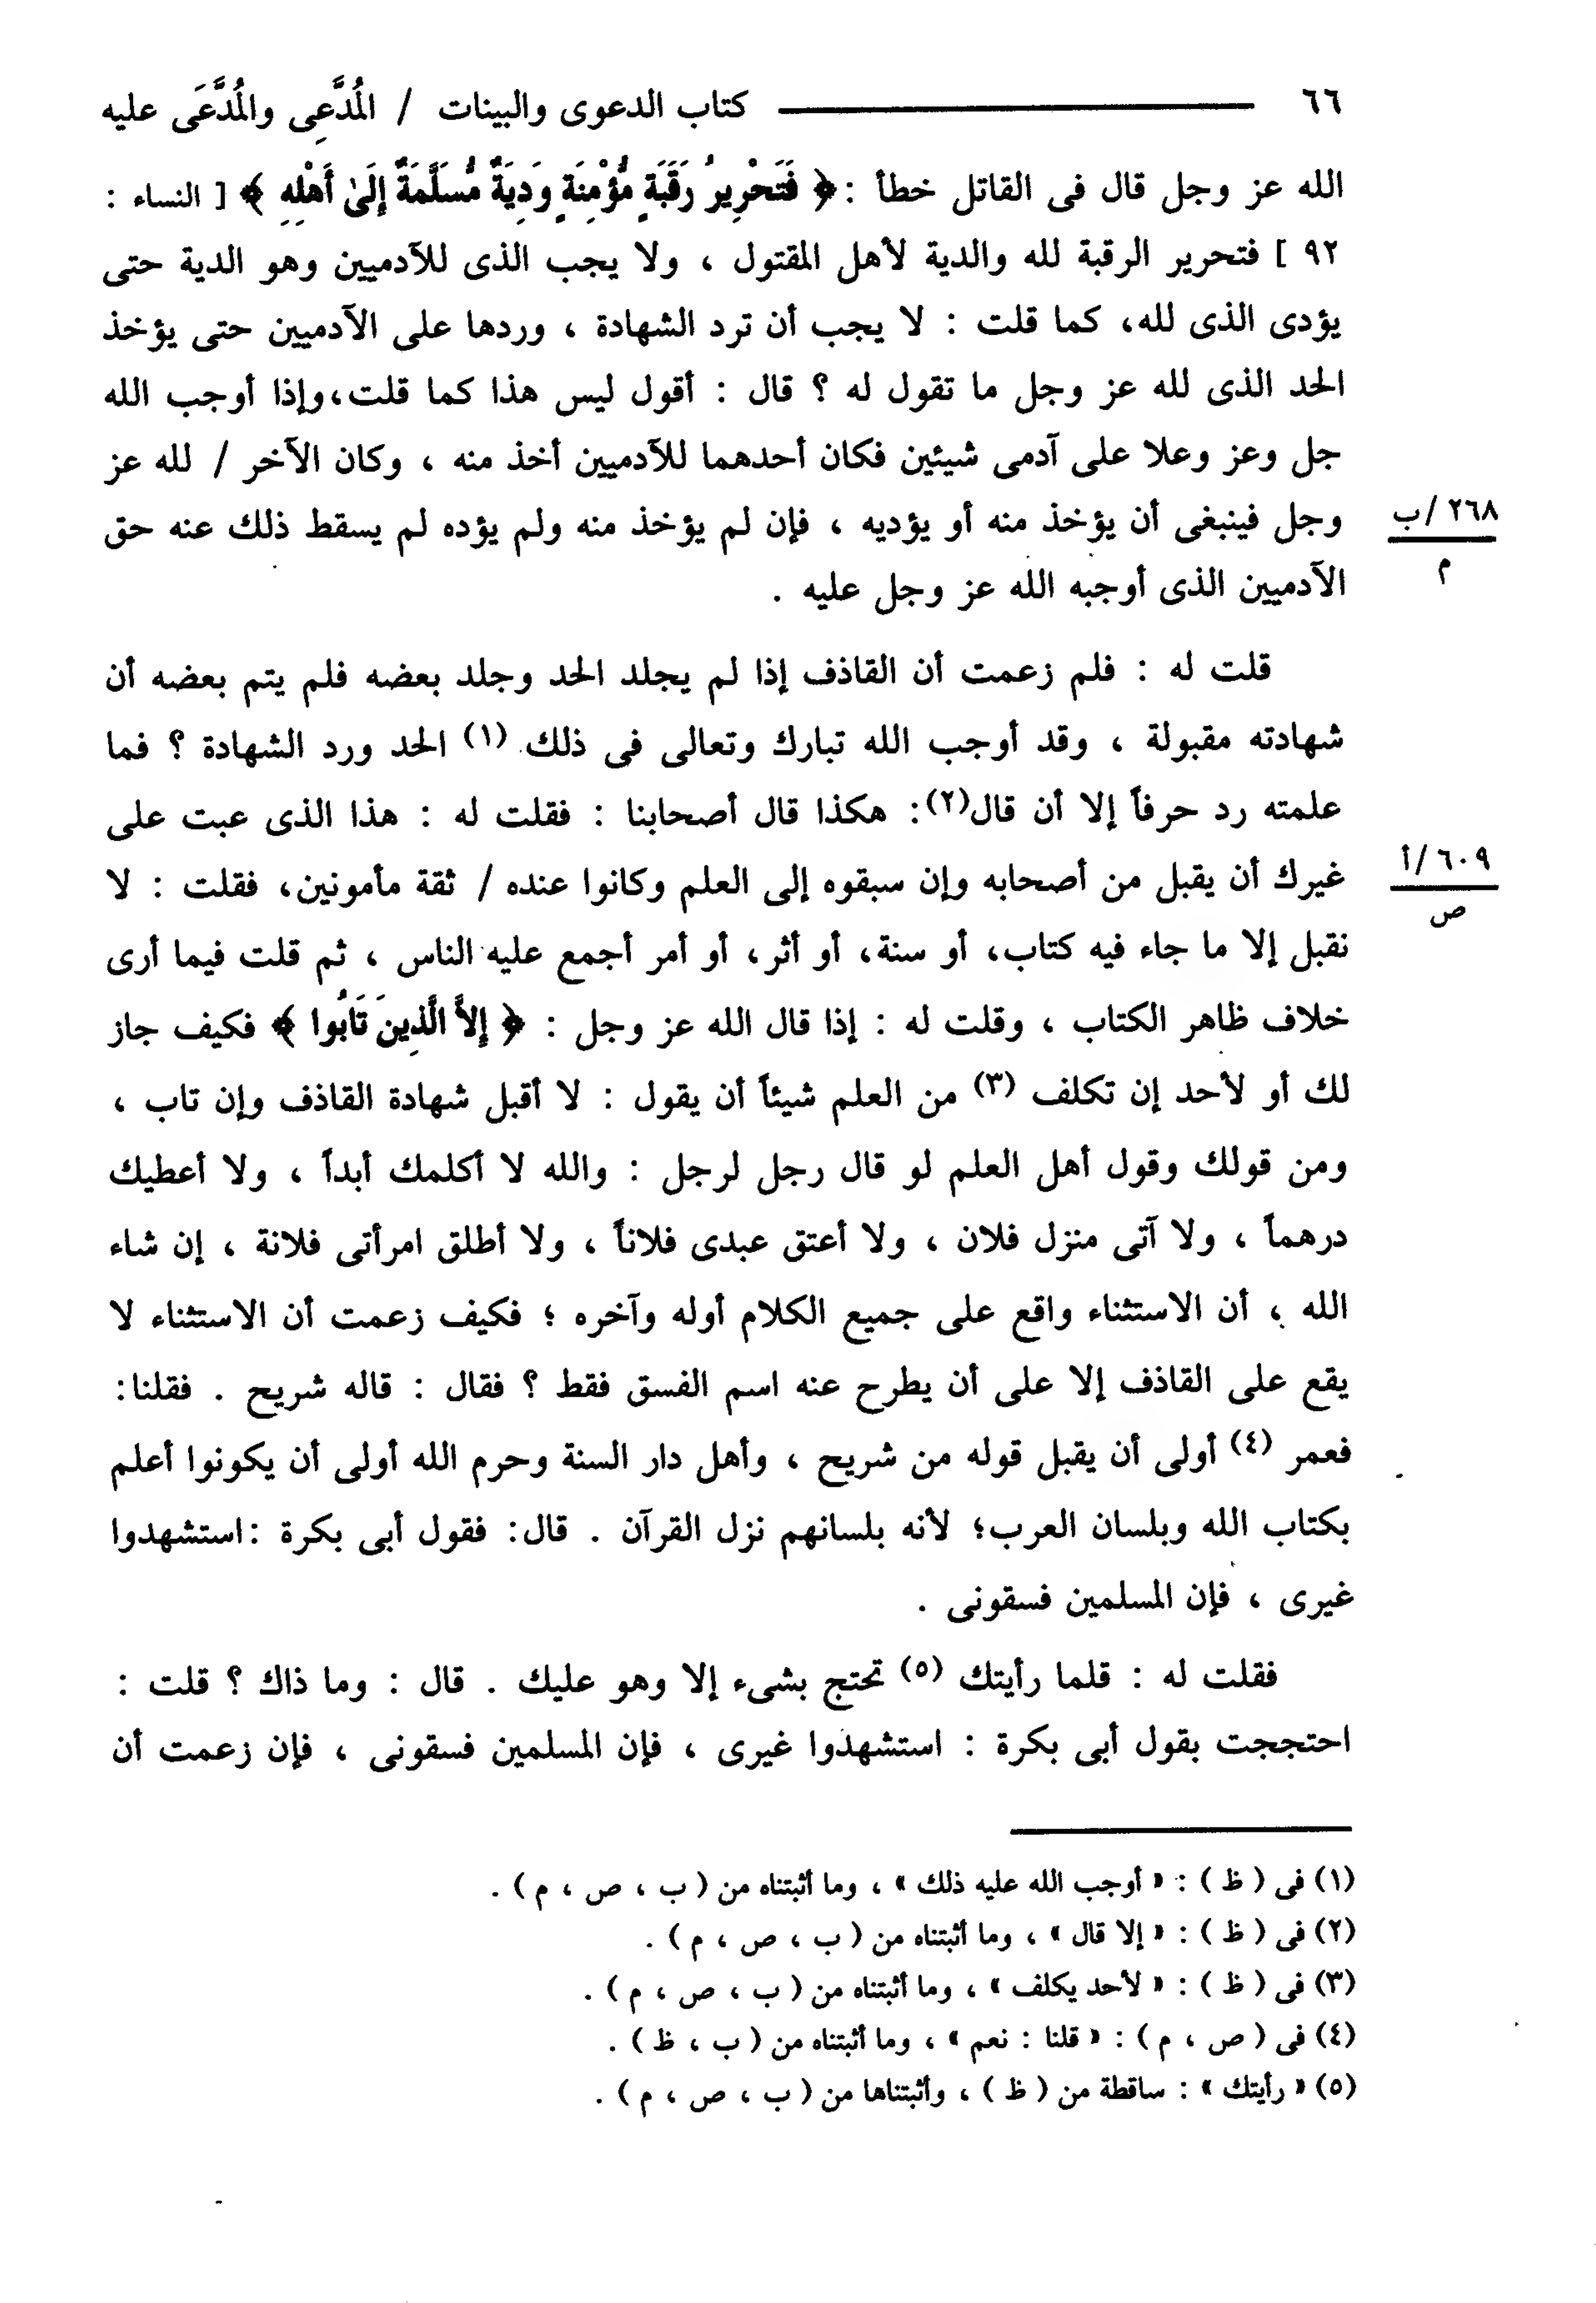 ٦٦ كتاب الدعوى والبينات / المُدَّعِى والمُدَّعَى عليه
الله عز وجل قال فى القاتل خطأ : ﴿ فَتَحْرِيرُ رَقَبَةٍ مُّؤْمِنَةٍ وَدِيَةٌ مُّسَلَّمَةٌ إِلَىٰ أَهْلِهِ ﴾ [ النساء :
٩٢ ] فتحرير الرقبة لله والدية لأهل المقتول ، ولا يجب الذى للآدميين وهو الدية حتى
يؤدى الذى لله، كما قلت : لا يجب أن ترد الشهادة ، وردها على الآدميين حتى يؤخذ
الحد الذى لله عز وجل ما تقول له ؟ قال : أقول ليس هذا كما قلت،وإذا أوجب الله
جل وعز وعلا على آدمى شيئين فكان أحدهما للآدميين أخذ منه ، وكان الآخر / لله عز
وجل فينبغى أن يؤخذ منه أو يؤديه ، فإن لم يؤخذ منه ولم يؤده لم يسقط ذلك عنه حق
٢٦٨ /ب
م
الآدميين الذى أوجبه الله عز وجل عليه .
قلت له : فلم زعمت أن القاذف إذا لم يجلد الحد وجلد بعضه فلم يتم بعضه أن
شهادته مقبولة ، وقد أوجب الله تبارك وتعالى فى ذلك (١) الحد ورد الشهادة ؟ فما
علمته رد حرفاً إلا أن قال(٢): هكذا قال أصحابنا : فقلت له : هذا الذى عبت على
غيرك أن يقبل من أصحابه وإن سبقوه إلى العلم وكانوا عنده / ثقة مأمونين، فقلت : لا
٦٠٩ /أ
ص
نقبل إلا ما جاء فيه كتاب، أو سنة، أو أثر، أو أمر أجمع عليه الناس ، ثم قلت فيما أرى
خلاف ظاهر الكتاب ، وقلت له : إذا قال الله عز وجل : ﴿ إِلاَّ الَّذِينَ تَابُوا ﴾ فكيف جاز
لك أو لأحد إن تكلف (٣) من العلم شيئاً أن يقول : لا أقبل شهادة القاذف وإن تاب ،
ومن قولك وقول أهل العلم لو قال رجل لرجل : والله لا أكلمك أبداً ، ولا أعطيك
درهماً ، ولا آتى منزل فلان ، ولا أعتق عبدى فلاناً ، ولا أطلق امرأتى فلانة ، إن شاء
الله ، أن الاستثناء واقع على جميع الكلام أوله وآخره ؛ فكيف زعمت أن الاستثناء لا
يقع على القاذف إلا على أن يطرح عنه اسم الفسق فقط ؟ فقال : قاله شريح . فقلنا:
فعمر (٤) أولى أن يقبل قوله من شريح ، وأهل دار السنة وحرم الله أولى أن يكونوا أعلم
بكتاب الله وبلسان العرب؛ لأنه بلسانهم نزل القرآن . قال: فقول أبى بكرة :استشهدوا
غيرى ، فإن المسلمين فسقونى .
فقلت له : قلما رأيتك (٥) تحتج بشىء إلا وهو عليك . قال : وما ذاك ؟ قلت :
احتججت بقول أبى بكرة : استشهدوا غيرى ، فإن المسلمين فسقونى ، فإن زعمت أن
(١) فى ( ظ ) : « أوجب الله عليه ذلك » ، وما أثبتناه من ( ب ، ص ، م ) .
(٢) فى ( ظ ) : « إلا قال » ، وما أثبتناه من ( ب ، ص ، م ) .
(٣) فى ( ظ ) : « لأحد يكلف » ، وما أثبتناه من ( ب ، ص ، م ) .
(٤) فى ( ص ، م ) : « قلنا : نعم » ، وما أثبتناه من ( ب ، ظ ) .
(٥) « رأيتك » : ساقطة من ( ظ ) ، وأثبتناها من ( ب ، ص ، م ) .